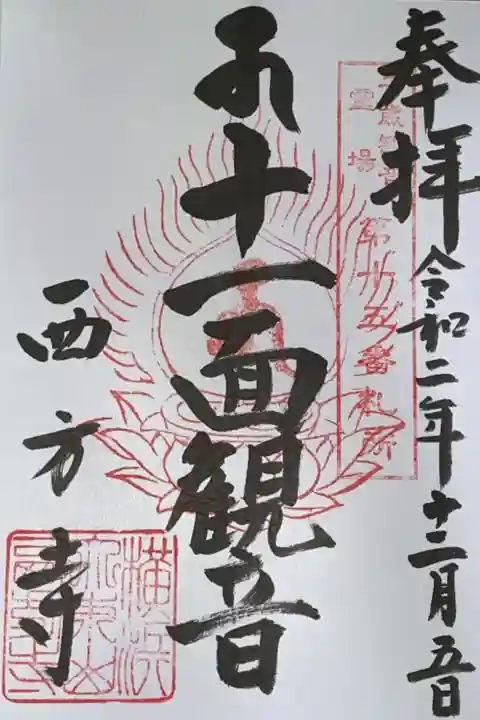 奉拝
令和二年十二月五日
霊場
第廿五番札所
十一面観音
西方寺
横浜